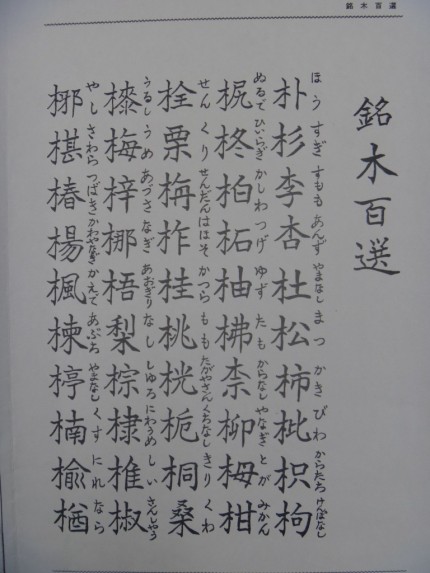 銘木百選
銘木百選
ほう すぎ すもも あんず やまなし まつ かき びわ からたち けんぽなし
朴杉李杏杜松柿枇枳枸
ぬるで ひいらぎ かしわ つげ ゆず たも からなし やなぎ とが みかん
柊柏柘柚柫柰柳栂柑
せん くり せんだん ははそ かつら もも たがやさん くちなし きり くわ
栓栗栴柞桂桃桄栀桐桑
うるし うめ あづさ なぎ あおぎり なし しゆろ にわうめ しい さんしやう
梅梓梛梧梨棕棣椎椒
やし さわら つばき かわやなぎ かえで あぶち やまなし くす にれ なら
椰椹椿楊楓楝楟楠楡楢